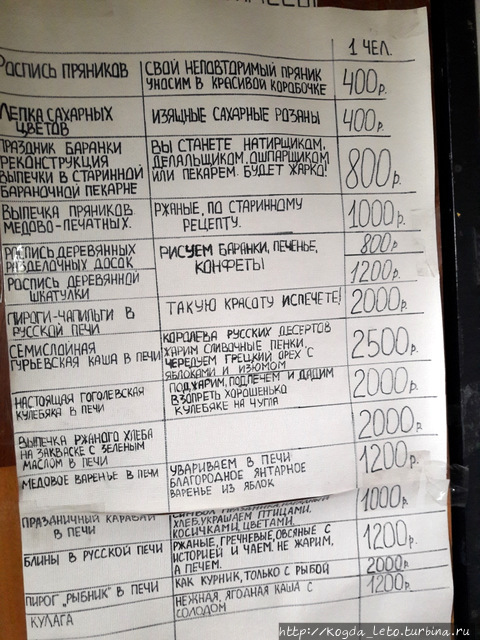 1 ЧЕЛ.
РОСПИСЬ ПРЯНИКОВ
СВОЙ НЕПОВТОРИМЫЙ ПРЯНИК
УНОСИМ В КРАСИВОЙ КОРОБОЧКЕ
400р.
ЛЕПКА САХАРНЫХ
ЦВЕТОВ
ИЗЯЩНЫЕ САХАРНЫЕ РОЗАНЫ
400р.
ПРАЗДНИК БАРАНКИ
РЕКОНСТРУКЦИЯ
ВЫПЕЧКИ В СТАРИННОЙ
БАРАНОЧНОЙ ПЕКАРНЕ
ВЫ СТАНЕТЕ НАТИРЩИКОМ,
ДЕЛАЛЬЩИКОМ, ОШПАРЩИКОМ
ИЛИ ПЕКАРЕМ. БУДЕТ ЖАРКО!
800р.
ВЫПЕЧКА ПРЯНИКОВ
МЕДОВО-ПЕЧАТНЫХ.
РЖАНЫЕ, ПО СТАРИННОМУ
РЕЦЕПТУ.
1000р.
РОСПИСЬ ДЕРЕВЯННЫХ
РАЗДЕЛОЧНЫХ ДОСОК
РИСУЕМ БАРАНКИ, ПЕЧЕНЬЕ,
КОНФЕТЫ
800р.
РОСПИСЬ ДЕРЕВЯННОЙ
ШКАТУЛКИ
1200р.
ПИРОГИ-ЧАПИЛЬГИ В
РУССКОЙ ПЕЧИ
ТАКУЮ КРАСОТУ ИСПЕЧЕТЕ!
2000р.
СЕМИСЛОЙНАЯ
ГУРЬЕВСКАЯ КАША В ПЕЧИ
КОРОЛЕВА РУССКИХ ДЕСЕРТОВ
ЖАРИМ СЛИВОЧНЫЕ ПЕНКИ,
ЧЕРЕДУЕМ ГРЕЦКИЙ ОРЕХ С
ЯБЛОКАМИ И ИЗЮМОМ
2500р.
НАСТОЯЩАЯ ГОГОЛЕВСКАЯ
КУЛЕБЯКА В ПЕЧИ
ПОДЖАРИМ, ПОДПЕЧЕМ И ДАДИМ
ВЗОПРЕТЬ ХОРОШЕНЬКО
КУЛЕБЯКЕ НА 4 УГЛА
2000р.
ВЫПЕЧКА РЖАНОГО ХЛЕБА
НА ЗАКВАСКЕ С ЗЕЛЕНЫМ
МАСЛОМ В ПЕЧИ
2000р.
МЕДОВОЕ ВАРЕНЬЕ В ПЕЧИ
УВАРИВАЕМ В ПЕЧИ
БЛАГОРОДНОЕ ЯНТАРНОЕ
ВАРЕНЬЕ ИЗ ЯБЛОК
1200р.
ПРАЗДНИЧНЫЙ КАРАВАЙ
В ПЕЧИ
ХЛЕБ, УКРАШАЕМ ПТИЦАМИ,
КОСИЧКАМИ, ЦВЕТАМИ.
1000р.
БЛИНЫ В РУССКОЙ ПЕЧИ
РЖАНЫЕ, ГРЕЧНЕВЫЕ, ОВСЯНЫЕ С
ИСТОРИЕЙ И ЧАЕМ. НЕ ЖАРИМ,
А ПЕЧЕМ.
1200р.
ПИРОГ „РЫБНИК" В ПЕЧИ
КАК КУРНИК, ТОЛЬКО С РЫБОЙ
2000р.
КУЛАГА
НЕЖНАЯ, ЯГОДНАЯ КАША С
СОЛОДОМ
1200р.
http://kogda_leto.turbina.ru